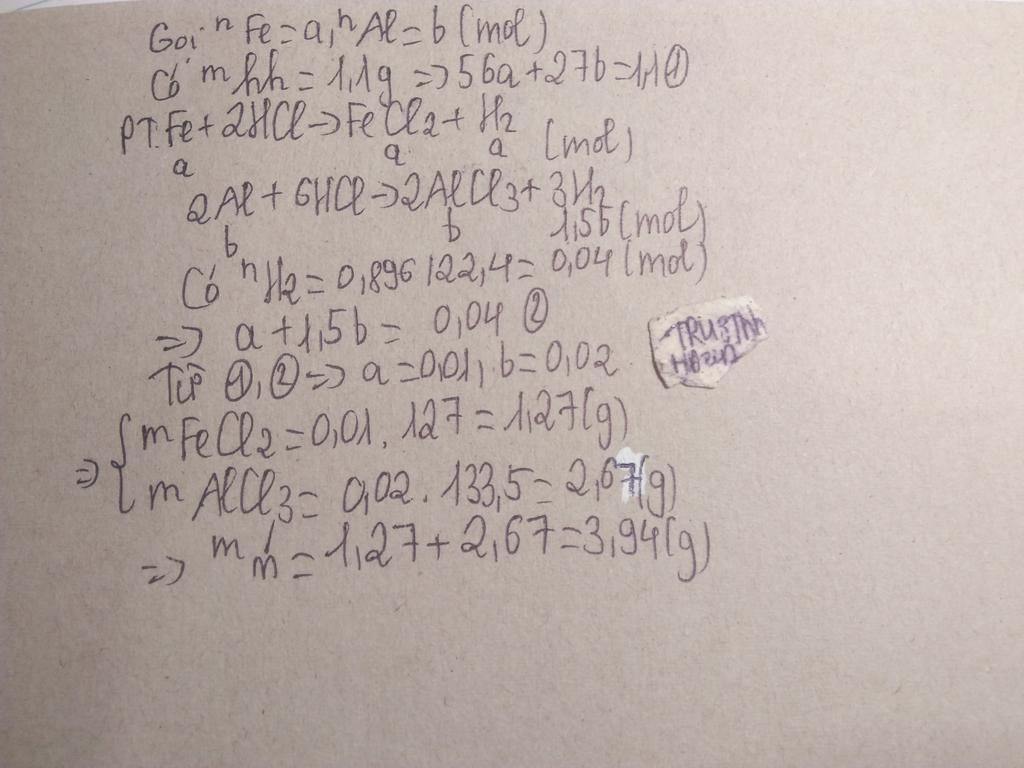 Gọi nFe = a, nAl = b (mol)
Có mhh = 1,1g => 56a + 27b = 1,1 ①
PT: Fe + 2HCl → FeCl2 + H2
a a a (mol)
2Al + 6HCl → 2AlCl3 + 3H2
b b 1,5b (mol)
Có nH2 = 0,896 : 22,4 = 0,04 (mol)
=> a + 1,5b = 0,04 ②
Từ ①, ② => a = 0,01, b = 0,02
=> { mFeCl2 = 0,01 . 127 = 1,27 (g)
mAlCl3 = 0,02 . 133,5 = 2,67 (g)
=> m = 1,27 + 2,67 = 3,94 (g)